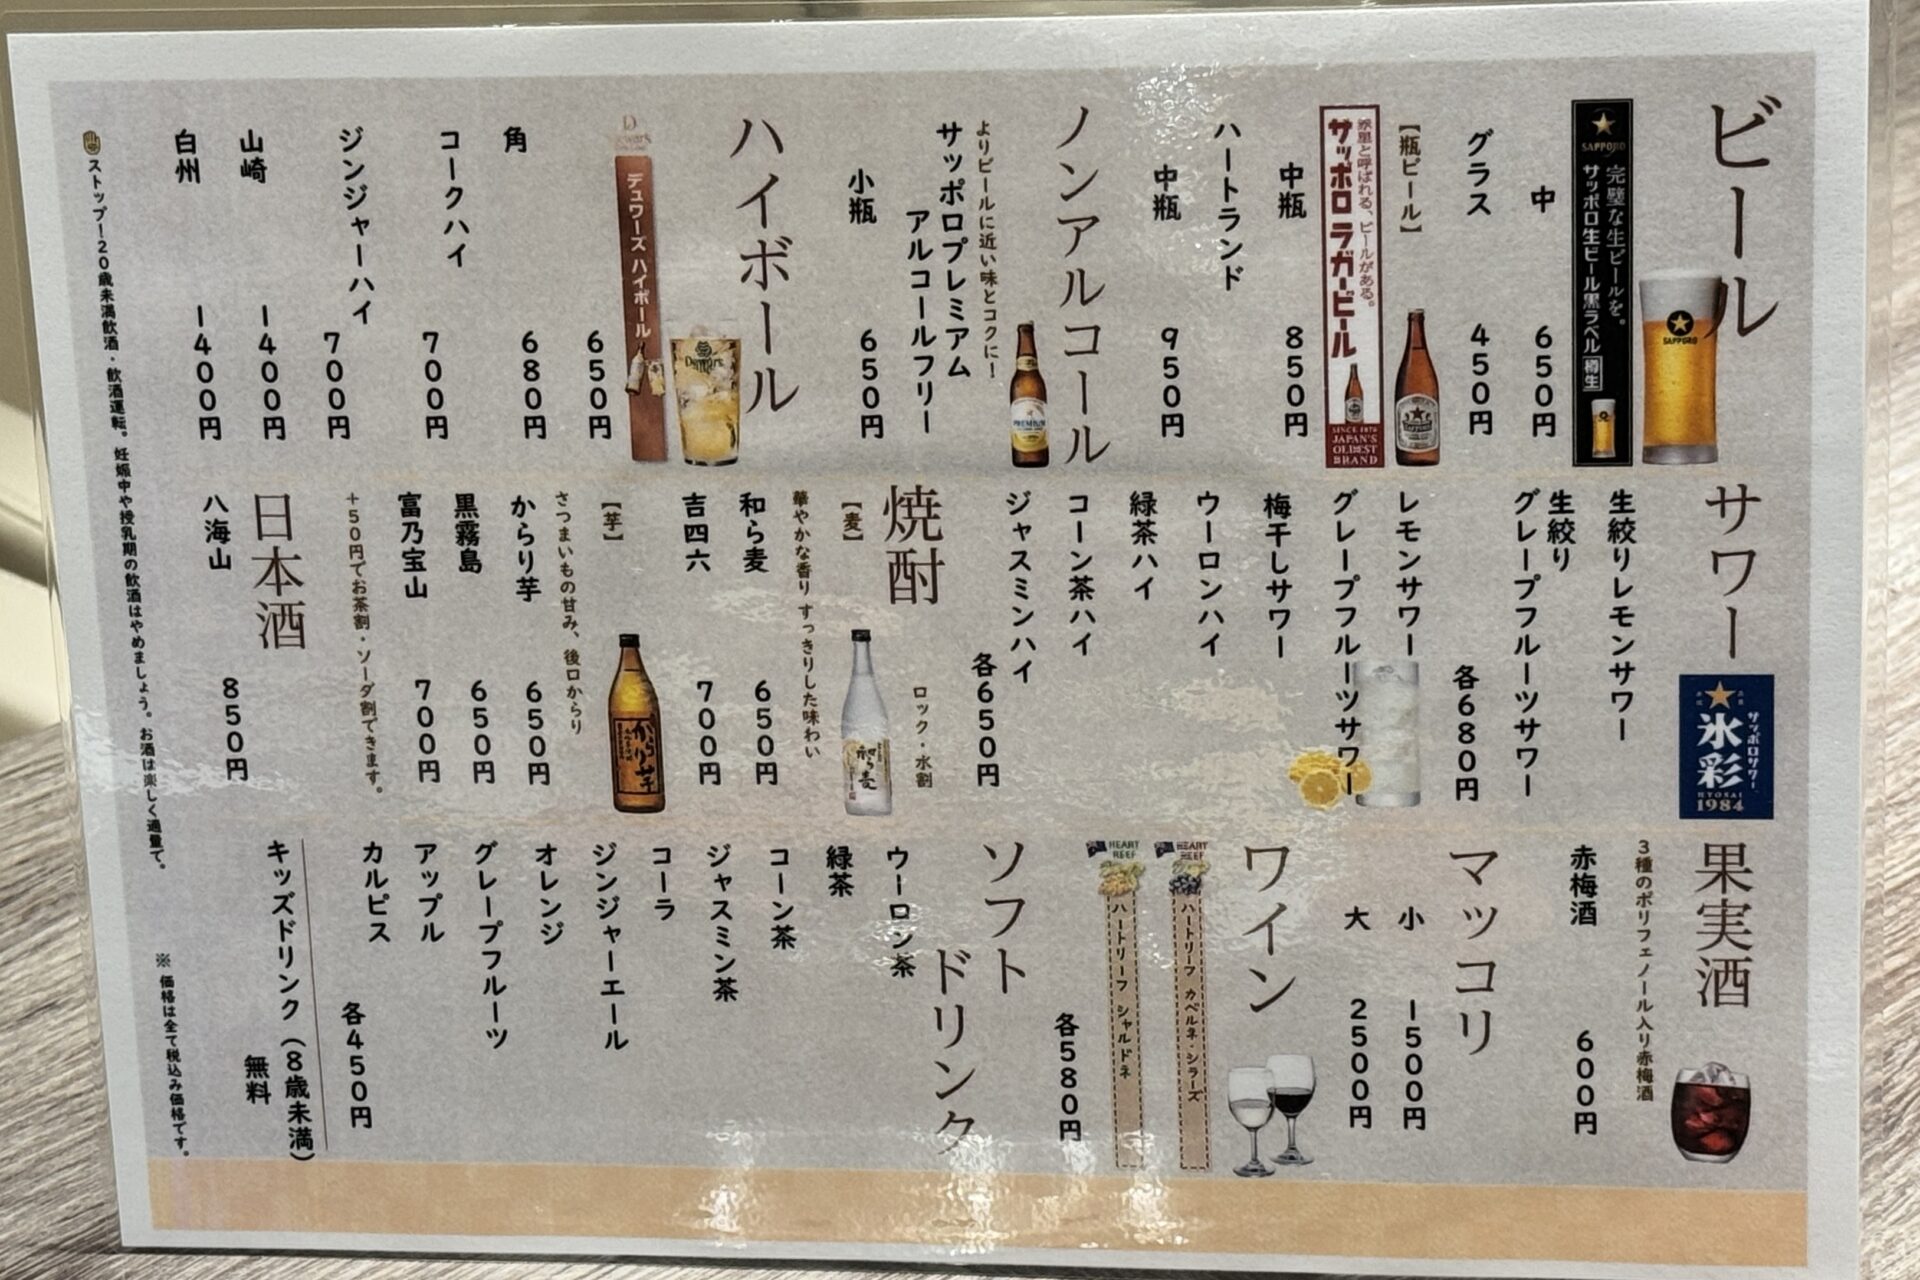 ビール
SAPPORO
完璧な生ビールを。
サッポロ生ビール黒ラベル 樽生
SAPPORO
中 650円
グラス 450円
【瓶ビール】
赤星と呼ばれる、ビールがある。
サッポロ ラガービール
SINCE 1876
JAPAN'S
OLDEST
BRAND
中瓶 850円
ハートランド
中瓶 950円
ノンアルコール
よりビールに近い味とコクに！
サッポロプレミアム
アルコールフリー
PREMIUM
小瓶 650円
ハイボール
Dewar's
デュワーズ ハイボール
650円
角 680円
コークハイ 700円
ジンジャーハイ 700円
山崎 1400円
白州 1400円
サワー
サッポロサワー
氷彩
HYOSAI
1984
生絞りレモンサワー
生絞り
グレープフルーツサワー
各680円
レモンサワー
グレープフルーツサワー
梅干しサワー
ウーロンハイ
緑茶ハイ
コーン茶ハイ
ジャスミンハイ
各650円
焼酎
ロック・水割
【麦】
華やかな香り すっきりした味わい
和ら麦
和ら麦 650円
吉四六 700円
【芋】
さつまいもの甘み、後口からり
からり芋
からり芋 650円
黒霧島 650円
富乃宝山 700円
+50円でお茶割・ソーダ割できます。
日本酒
八海山 850円
果実酒
3種のポリフェノール入り赤梅酒
赤梅酒 600円
マッコリ
小 1500円
大 2500円
ワイン
HEART
REEF
ハートリーフ カベルネ・シラーズ
HEART
REEF
ハートリーフ シャルドネ
各580円
ソフト
ドリンク
ウーロン茶
緑茶
コーン茶
ジャスミン茶
コーラ
ジンジャーエール
オレンジ
グレープフルーツ
アップル
カルピス
各450円
キッズドリンク（8歳未満）
無料
ストップ！20歳未満飲酒・飲酒運転。妊娠中や授乳期の飲酒はやめましょう。お酒は楽しく適量で。
※ 価格は全て税込み価格です。